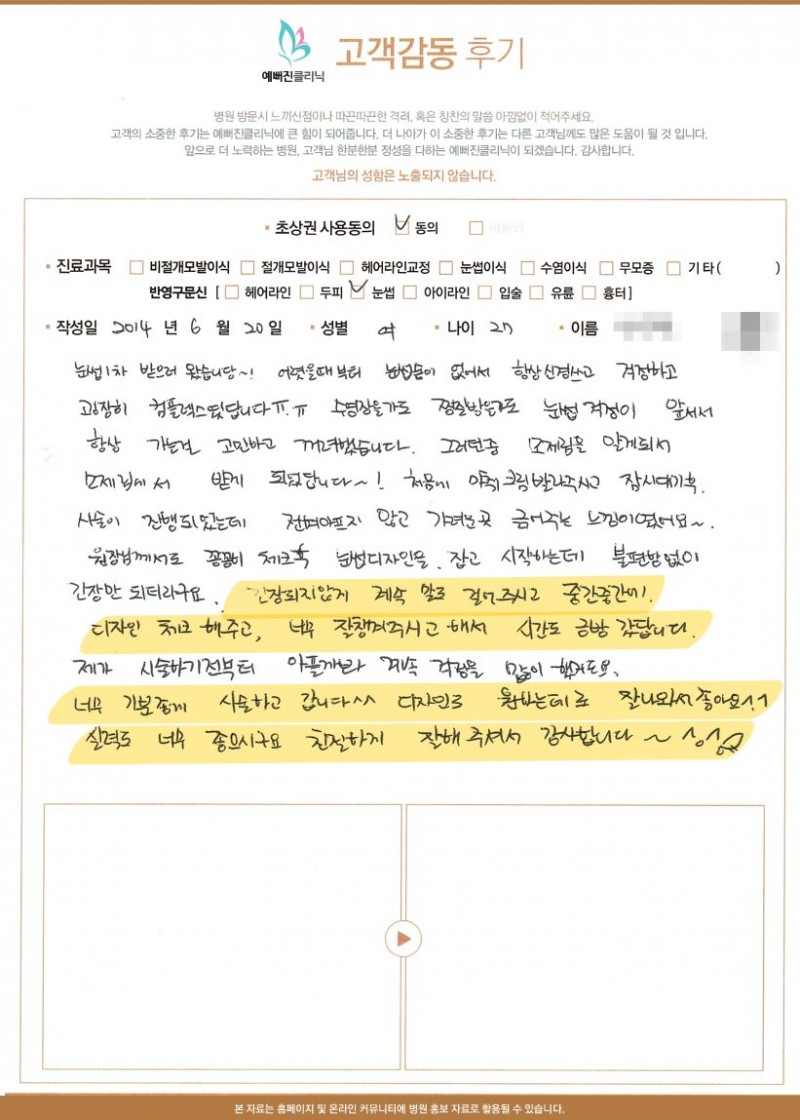 예뻐진클리닉
고객감동 후기
병원 방문시 느끼신점이나 따끈따끈한 격려, 혹은 칭찬의 말씀 아낌없이 적어주세요.
고객의 소중한 후기는 예뻐진클리닉에 큰 힘이 되어줍니다. 더 나아가 이 소중한 후기는 다른 고객님께도 많은 도움이 될 것 입니다.
앞으로 더 노력하는 병원, 고객님 한분한분 정성을 다하는 예뻐진클리닉이 되겠습니다. 감사합니다.
고객님의 성함은 노출되지 않습니다.
• 초상권 사용동의 ☑ 동의 □
• 진료과목 □ 비절개모발이식 □ 절개모발이식 □ 헤어라인교정 □ 눈썹이식 □ 수염이식 □ 무모증 □ 기타( )
반영구문신 [ □ 헤어라인 □ 두피 ☑ 눈썹 □ 아이라인 □ 입술 □ 유륜 □ 흉터 ]
• 작성일 2014 년 6 월 20 일 • 성별 여 • 나이 27 • 이름
눈썹1차 받으러 왔습니당~! 어렸을때부터 눈썹숱이 없어서 항상신경쓰고 걱정하고
굉장히 컴플렉스였답니다ㅠ.ㅠ 수영장을가도 찜질방을가도 눈썹 걱정이 앞서서
항상 가는걸 고민하고 꺼려했습니다. 그러던중 모제림을 알게되서
모제림에서 받게 되었답니다~! 처음에 마취크림발라주시고 잠시대기후.
시술이 진행되었는데 전혀아프지 않고 가려운곳 긁어주는 느낌이였어요~.
원장님께서도 꼼꼼히 체크후 눈썹디자인을 잡고 시작하는데 불편함없이
긴장만 되더라구요. 긴장되지않게 계속 말도 걸어주시고 중간중간에!
디자인 체크 해주고, 너무 잘챙겨주시고 해서 시간도 금방 갔답니다.
제가 시술하기전부터 아플까봐 계속 걱정을 많이 했거든요.
너무 기분좋게 시술하고 갑니다^^ 디자인도 원하는데로 잘나와서 좋아요!!
실력도 너무 좋으시구요 친절하게 잘해주셔서 감사합니다~
본 자료는 홈페이지 및 온라인 커뮤니티에 병원 홍보 자료로 활용될 수 있습니다.